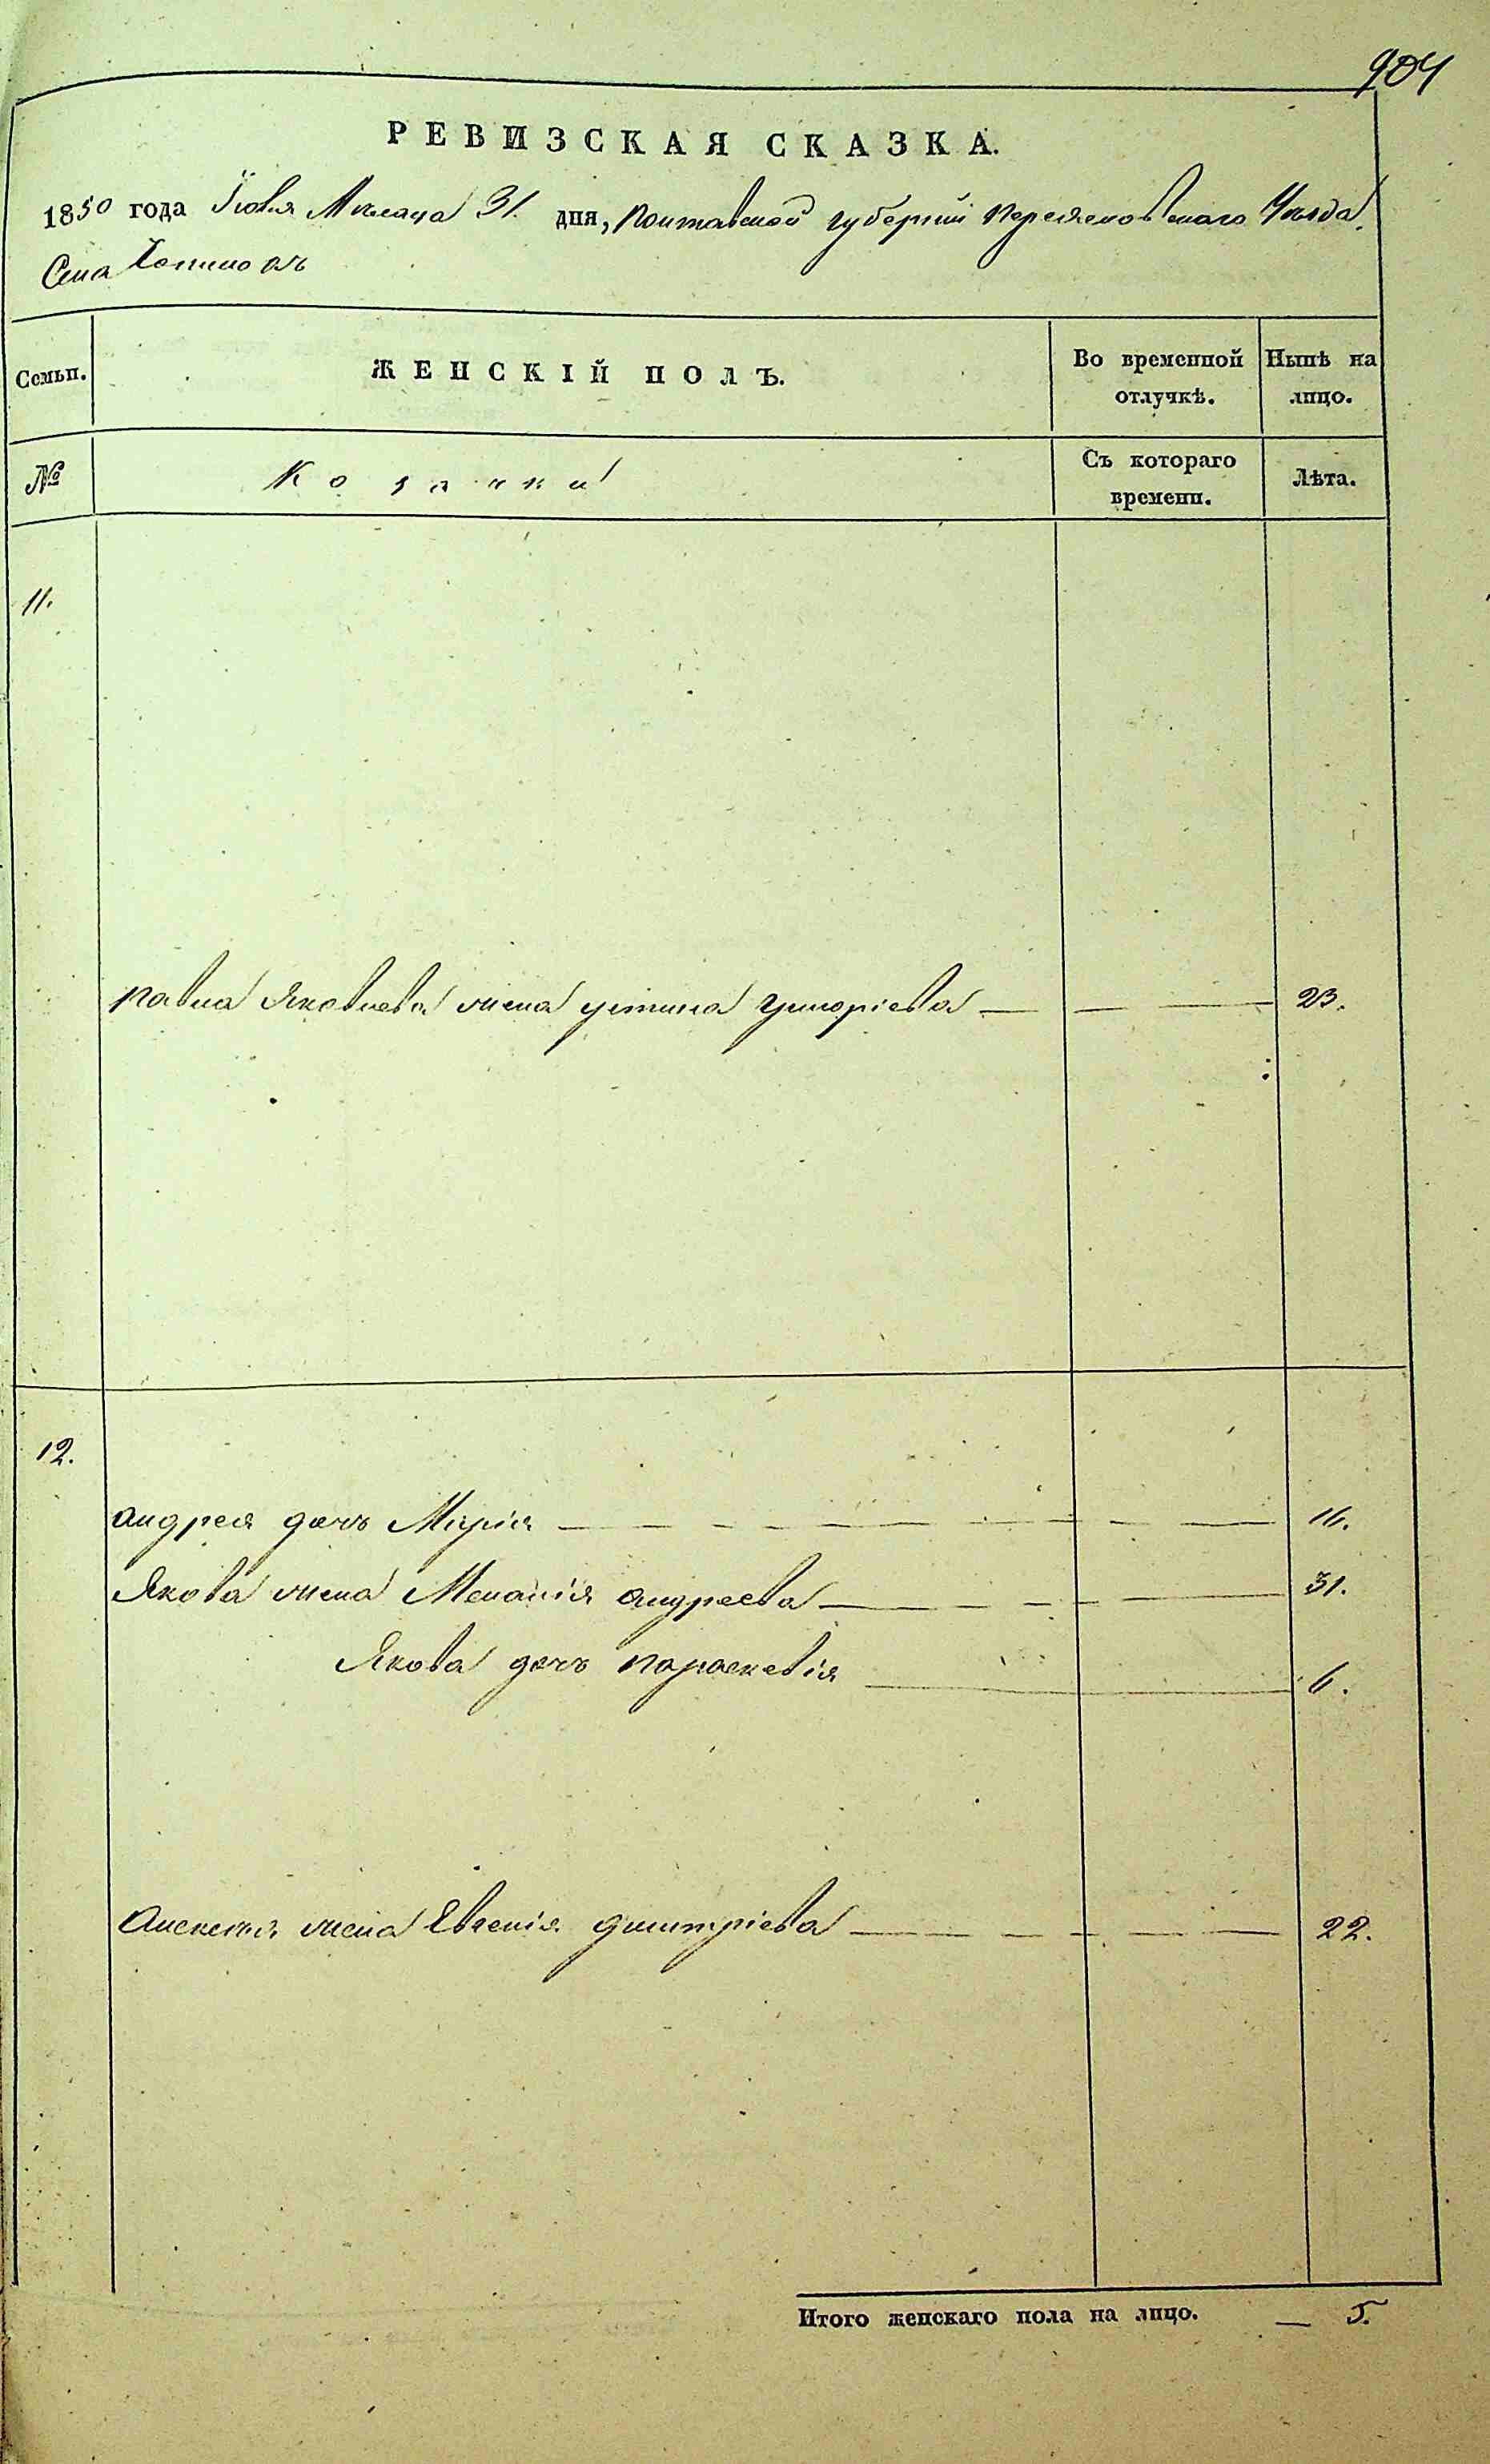 904
РЕВИЗСКАЯ СКАЗКА.
1850 года Іюля Месяца 31. дня, Полтавской губерніи Переяславскаго Уезда.
Села Хоцмокъ
Семьи. ЖЕНСКІЙ ПОЛЪ. Во временной отлучкѣ. Нынѣ на лицо.
№ Козачки Съ котораго времени. Лѣта.
11.
Павла Яковлева жена Устина Григоріева — — — 23.
12.
Андрея дочь Марія — — — 16.
Якова жена Меланія Андреева — — — 31.
Якова дочь Параскевія — 6.
Алексея жена Евгенія Дмитріева — — — 22.
Итого женскаго пола на лицо. — 5.